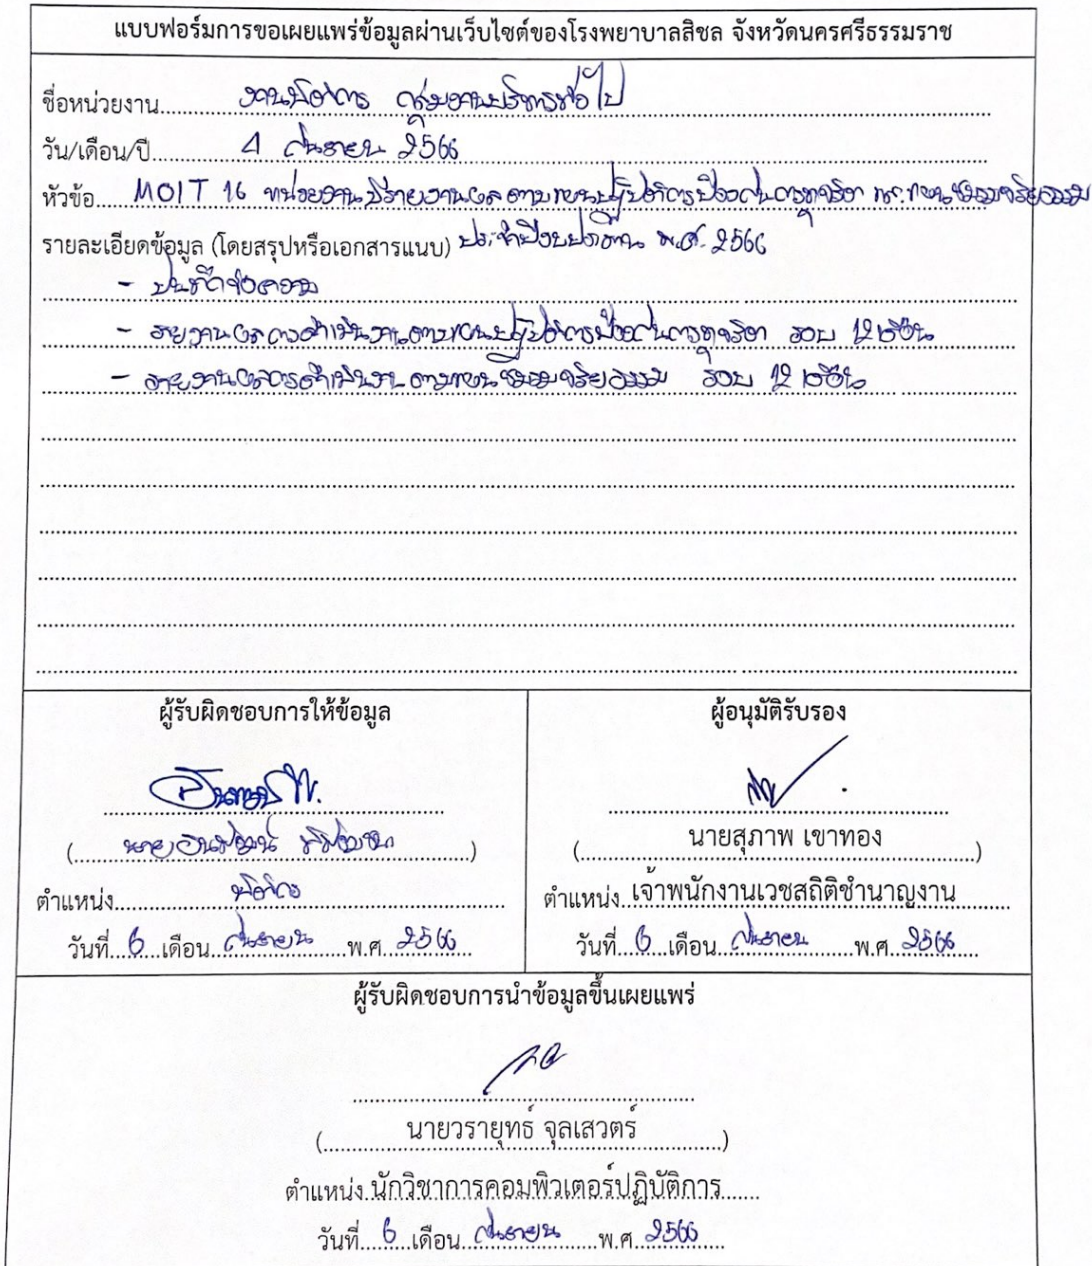 แบบฟอร์มการขอเผยแพร่ข้อมูลผ่านเว็บไซต์ของโรงพยาบาลสิชล จังหวัดนครศรีธรรมราช
ชื่อหน่วยงาน งานนิติการ กลุ่มงานบริหารทั่วไป
วัน/เดือน/ปี 4 กันยายน 2566
หัวข้อ MOIT 16 หน่วยงานมีรายงานผลตามแผนปฏิบัติการป้องกันการทุจริต และแผนชมรมจริยธรรม
รายละเอียดข้อมูล (โดยสรุปหรือเอกสารแนบ) ประจำปีงบประมาณ พ.ศ. 2566
- บันทึกข้อความ
- รายงานผลการดำเนินงานตามแผนปฏิบัติการป้องกันการทุจริต รอบ 12 เดือน
- รายงานผลการดำเนินงานตามแผนชมรมจริยธรรม รอบ 12 เดือน
ผู้รับผิดชอบการให้ข้อมูล
(นาย)
ตำแหน่ง นิติกร
วันที่ 6 เดือน กันยายน พ.ศ. 2566
ผู้อนุมัติรับรอง
(นายสุภาพ เขาทอง)
ตำแหน่ง เจ้าพนักงานเวชสถิติชำนาญงาน
วันที่ 6 เดือน กันยายน พ.ศ. 2566
ผู้รับผิดชอบการนำข้อมูลขึ้นเผยแพร่
(นายวรายุทธ์ จุลเสวตร์)
ตำแหน่ง นักวิชาการคอมพิวเตอร์ปฏิบัติการ
วันที่ 6 เดือน กันยายน พ.ศ. 2566